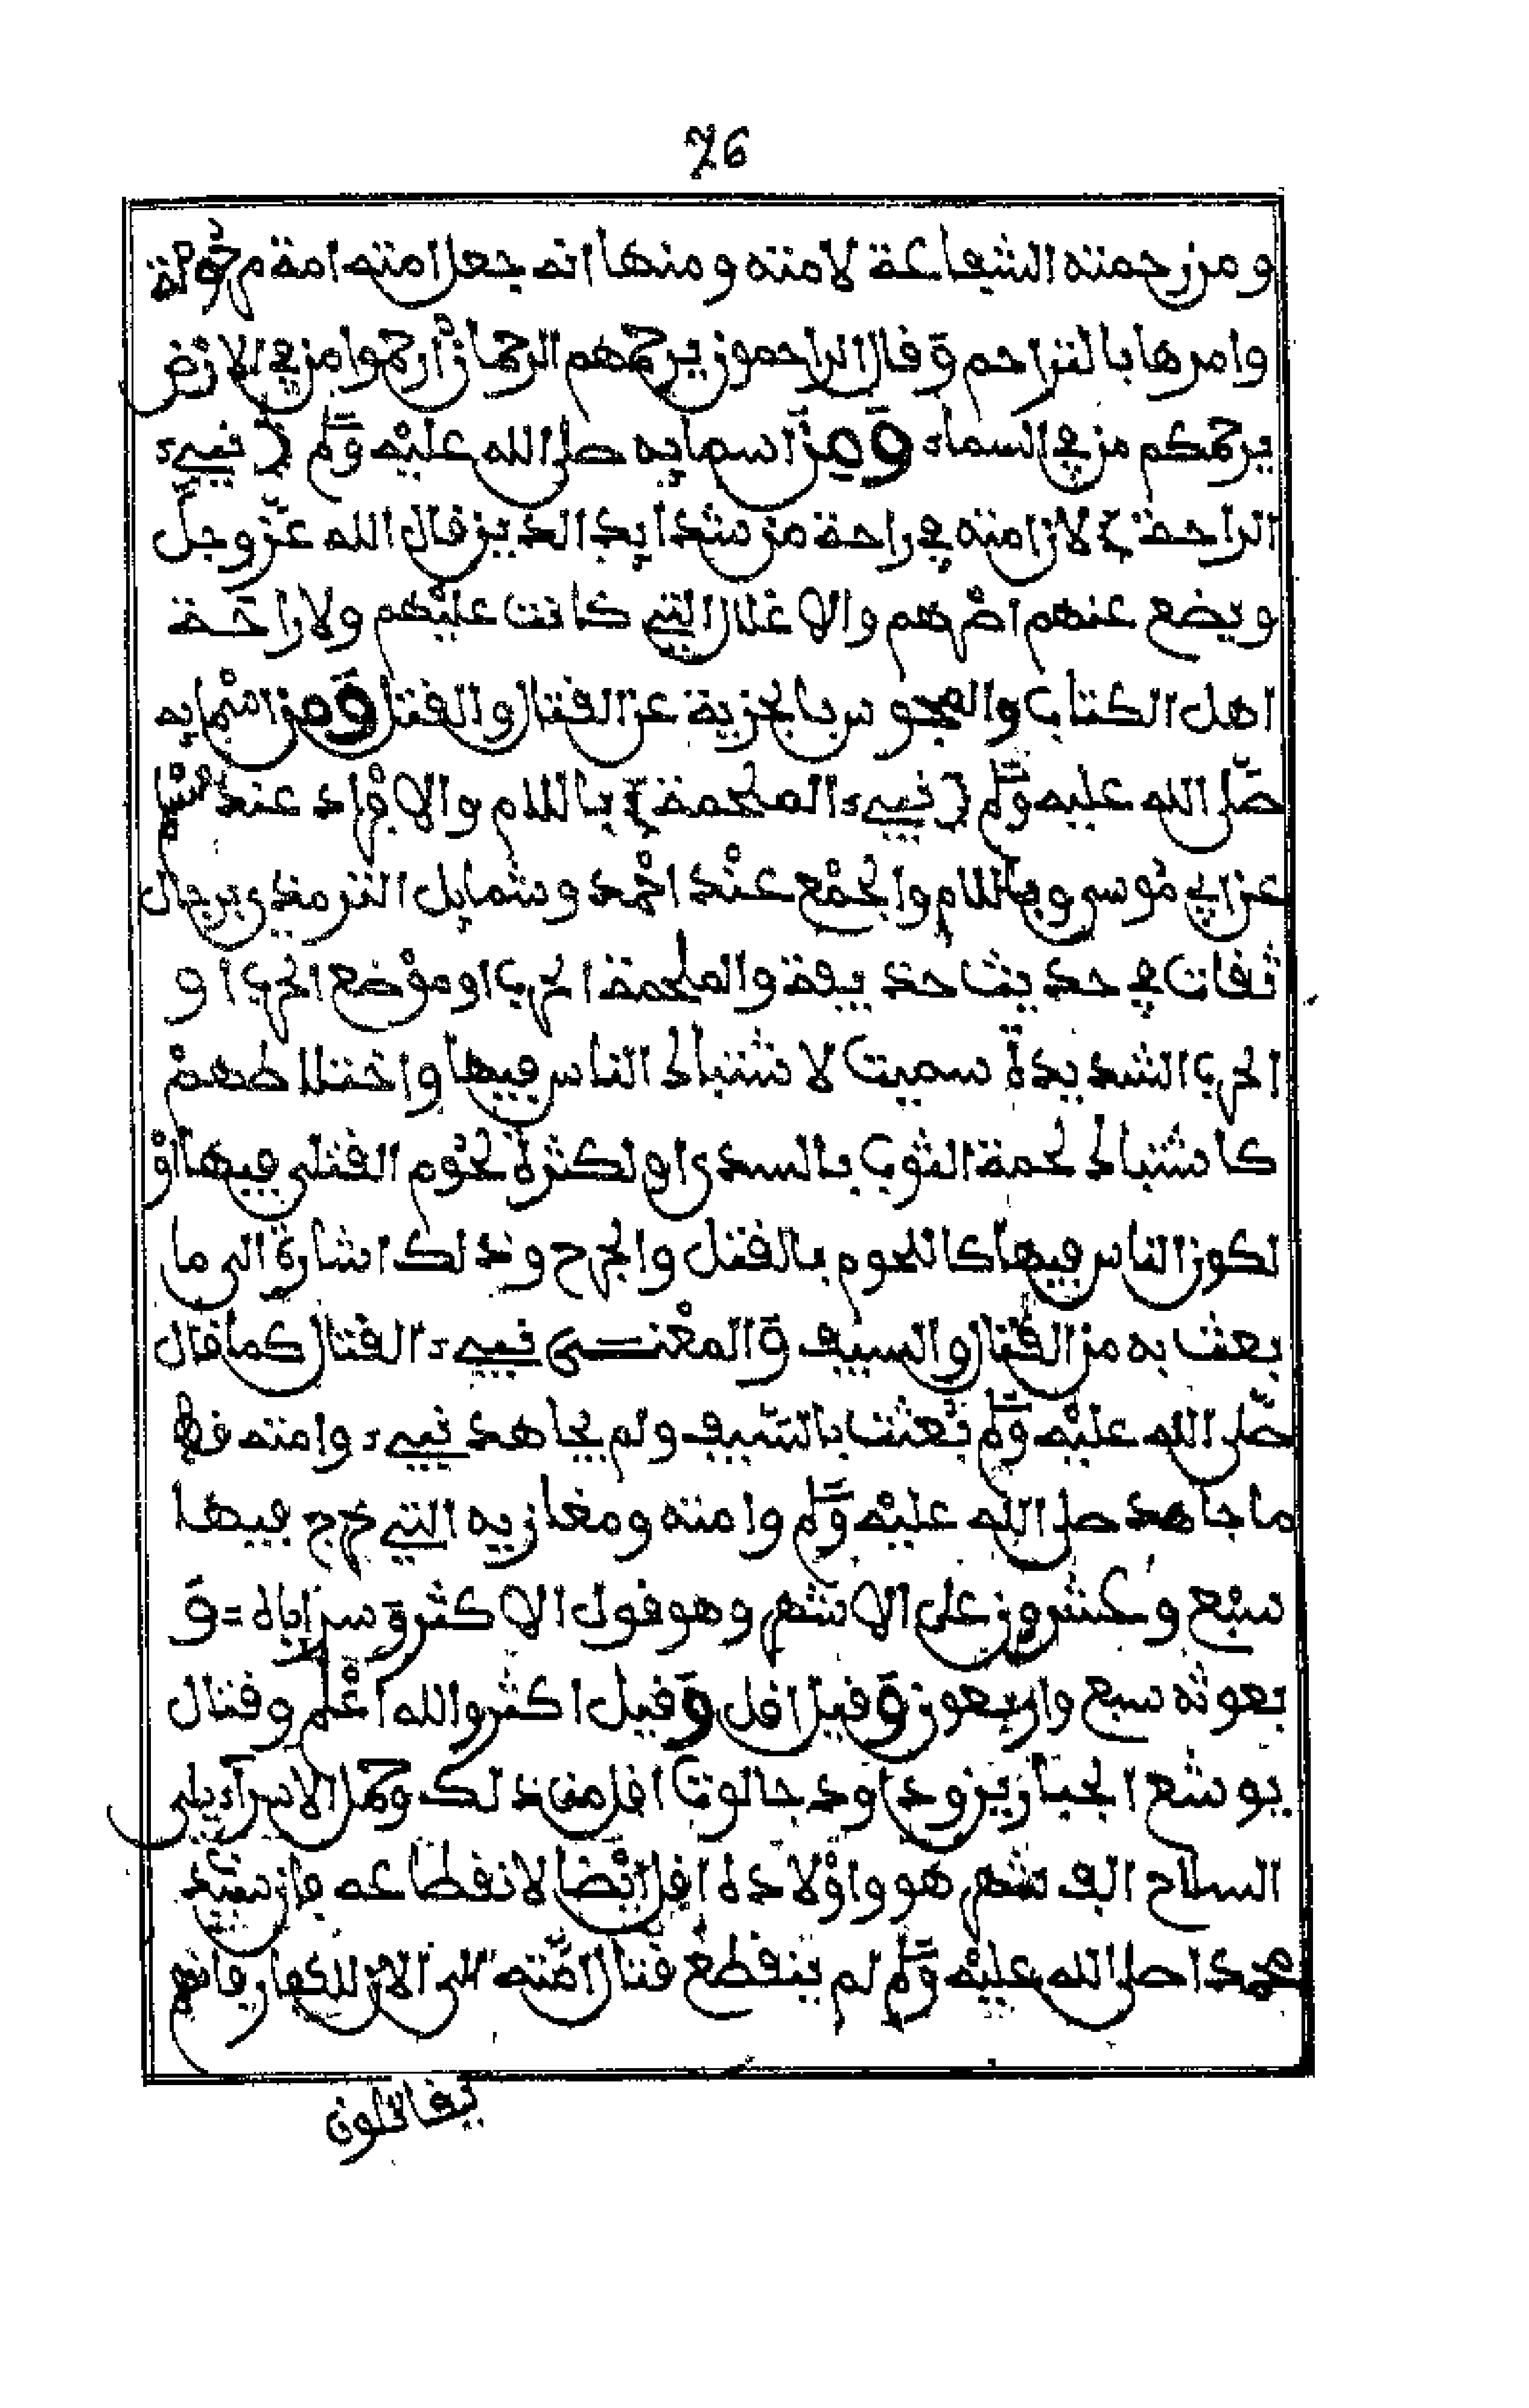 76
ومن رحمته الشفاعة لامته ومنها انه جعل امته امة مرحومة
وامرها بالتراحم وقال الراحمون يرحمهم الرحمان ارحموا من في الارض
يرحمكم من في السماء ومن اسمايه صلى الله عليه وسلم (نبيء
الراحة) لان امته في راحة من شدايد الدين قال الله عز وجل
ويضع عنهم اصرهم والاغلال التي كانت عليهم ولا راحة
اهل الكتاب والمجوس بالجزية عن القتال والقتل ومن اسمايه
صلى الله عليه وسلم (نبيء الملحمة) باللام والافراد عند مسلم
عن ابي موسى وباللام والجمع عند احمد وشمايل الترمذي برجال
ثقات في حديث حذيفة والملحمة الحرب او موضع الحرب او
الحرب الشديدة سميت لاشتباك الناس فيها واختلاطهم
كاشتباك لحمة الثوب بالسدى او لكثرة لحوم القتلى فيها او
لكون الناس فيها كاللحوم بالقتل والجرح وذلك اشارة الى ما
بعث به من القتال والسيف والمعنى نبيء القتال كما قال
صلى الله عليه وسلم بعثت بالسيف ولم يجاهد نبيء وامته قط
ما جاهد صلى الله عليه وسلم وامته ومغازيه التي خرج فيها
سبع وعشرون على الاشهر وهو قول الاكثر وسراياه = و
بعوثه سبع واربعون وقيل اقل وقيل اكثر والله اعلم وقتال
يوشع الجبارين وداود جالوت اقل من ذلك وحمل الاسرآءيلى
السلاح الف شهر هو واولاده اقل ايضا لانقطاعه فان سيد
محمدا صلى الله عليه وسلم لم ينقطع قتال امته الى الان للكفار فانهم
يقاتلون